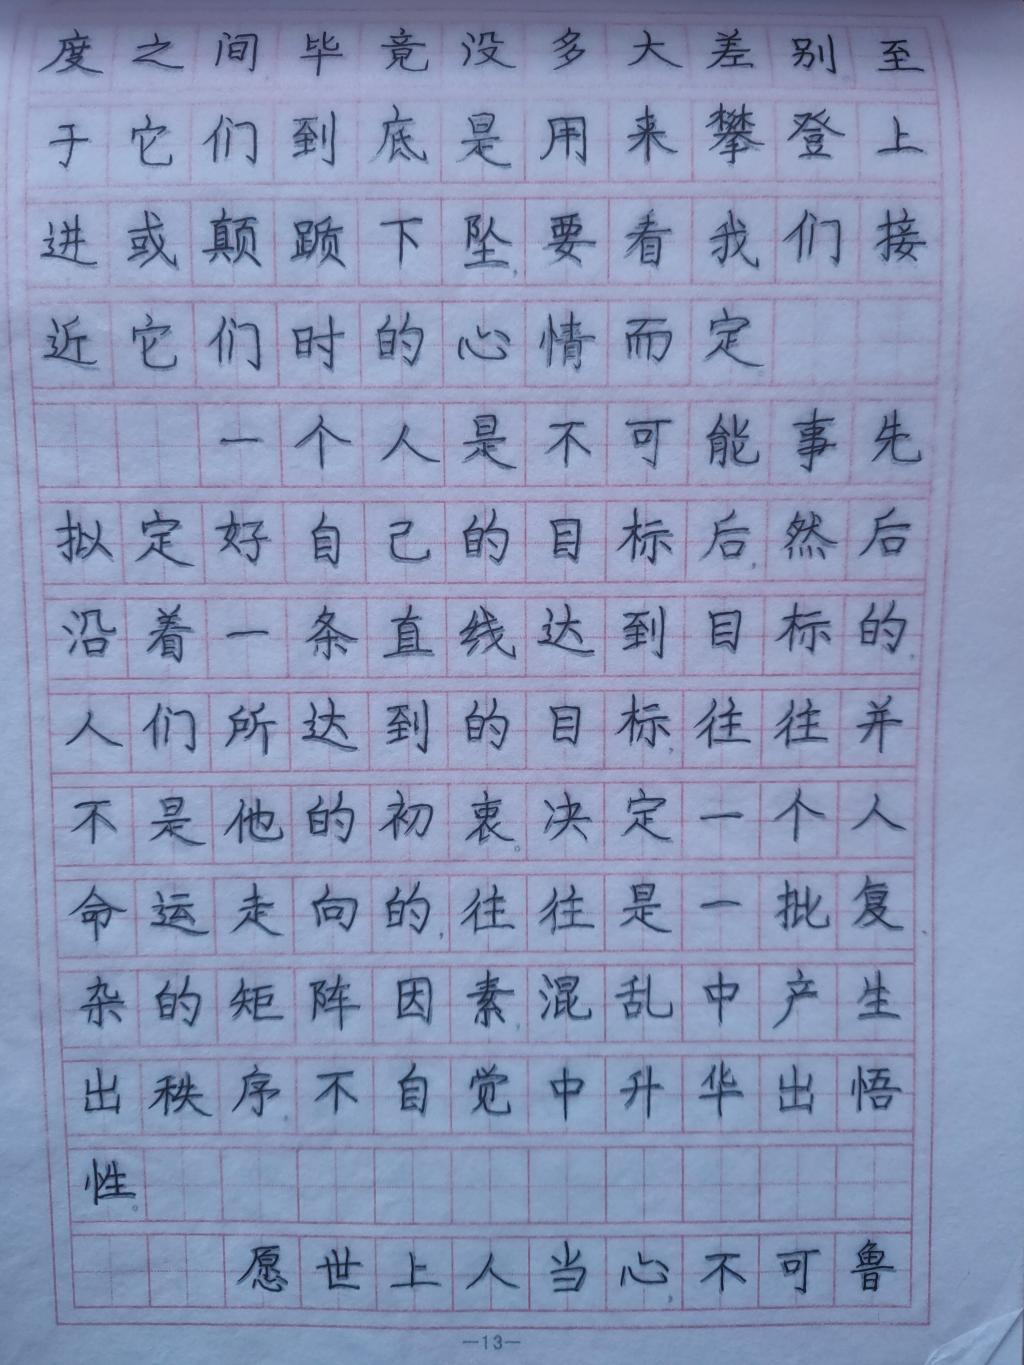 度之间毕竟没多大差别至
于它们到底是用来攀登上
进或颠踬下坠,要看我们接
近它们时的心情而定。
一个人是不可能事先
拟定好自己的目标后,然后
沿着一条直线达到目标的,
人们所达到的目标,往往并
不是他的初衷。决定一个人
命运走向的,往往是一批复
杂的矩阵因素,混乱中产生
出秩序,不自觉中升华出悟
性。
愿世上人当心,不可鲁
—13—